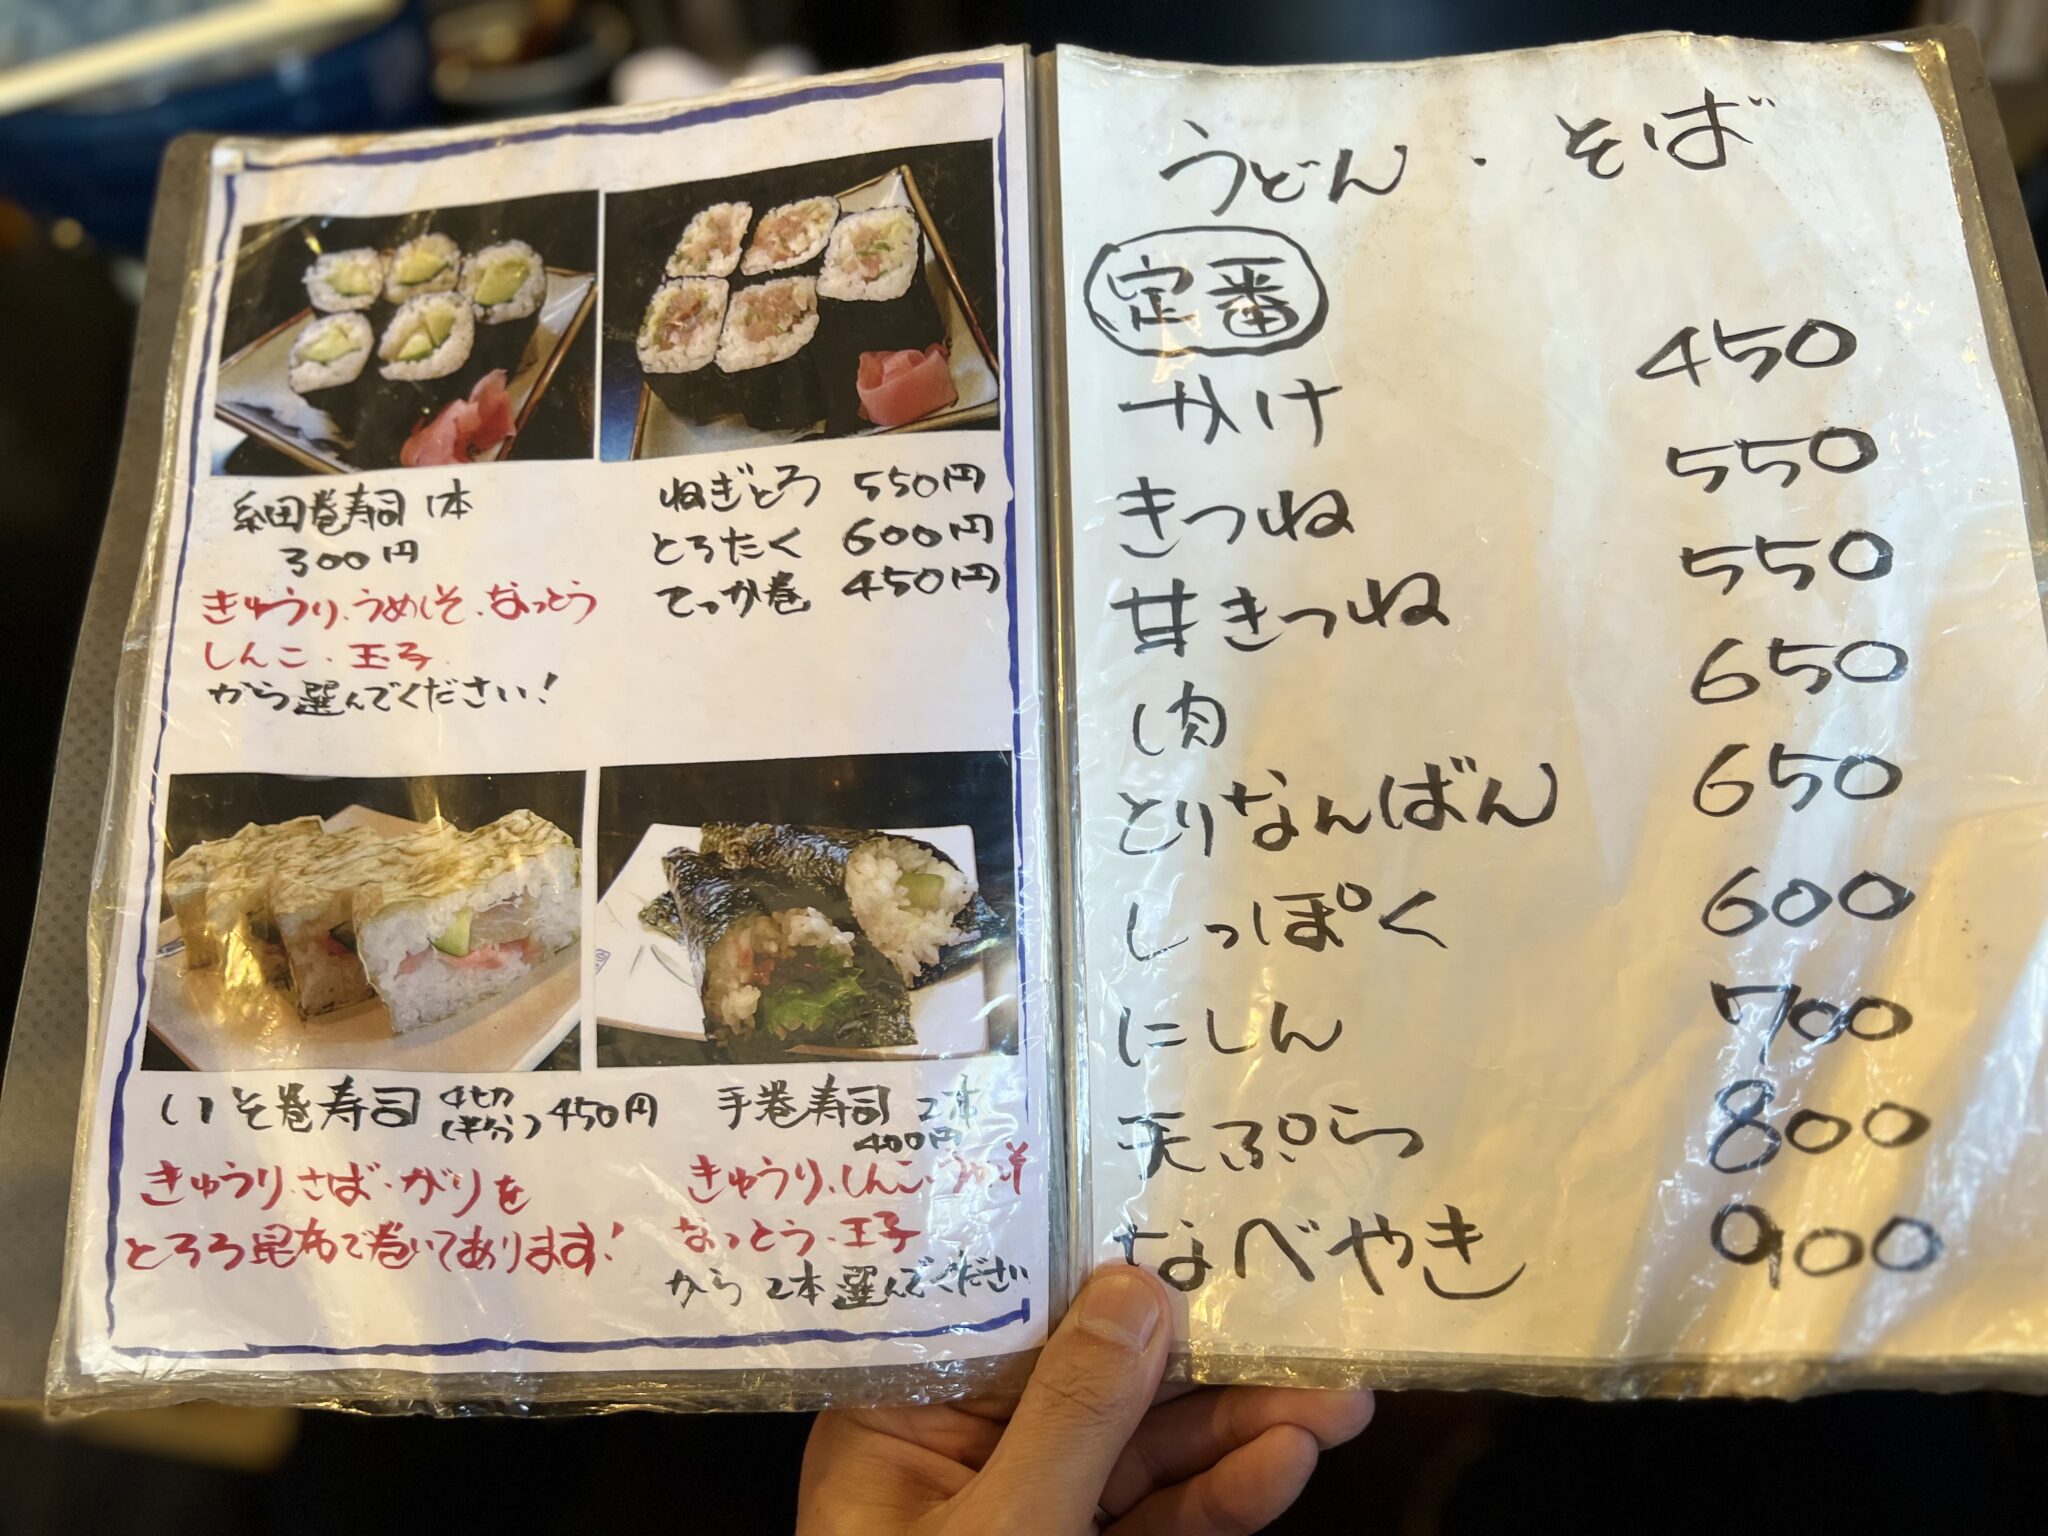 細巻寿司 1本
300円
きゅうり、うめしそ、なっとう
しんこ、玉子
から選んでください!
ねぎとろ 550円
とろたく 600円
てっか巻 450円
いそ巻寿司 4切(半分) 450円
きゅうり、さば、がりを
とろろ昆布で巻いてあります!
手巻寿司 2本
400円
きゅうり、しんこ、うめしそ
なっとう、玉子
から 2本選んでください
うどん・そば
定番
かけ 450
きつね 550
甘きつね 550
肉 650
とりなんばん 650
しっぽく 600
にしん 700
天ぷら 800
なべやき 900